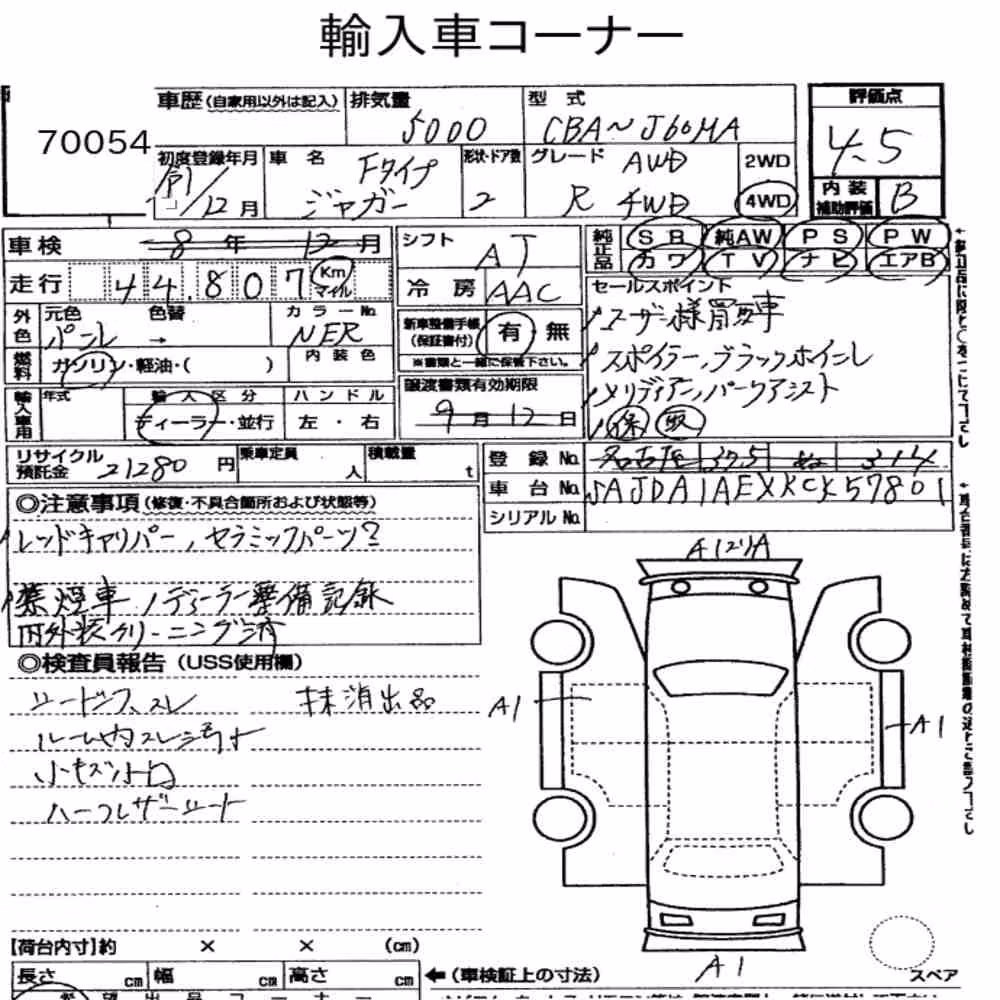 輸入車コーナー
70054
車歴 (自家用以外は記入) 排気量 5000 型式 CBA~J60MA 評価点 4.5
初度登録年月 令1/12月 車名 Fタイプ ジャガー 形状・ドア数 2 グレード R AWD 4WD 2WD 4WD 内装補助評価 B
車検 8年 12月 シフト AT 純正品 SR 純AW PS PW
カワ TV ナビ エアB
走行 44.807 Km マイル 冷房 AAC セールスポイント
外色 元色 パール 色替 → カラーNo. NER 新車整備手帳 (保証書付) 有 無 ユーザー様買取車
燃料 ガソリン・軽油・( ) 内装色 ※書類と一緒に保管下さい。 スポイラー、ブラックホイール
輸入車用 年式 輸入区分 ハンドル 譲渡書類有効期限 メリディアン、パークアシスト
ディーラー・並行 左・右 9月12日 保 取
リサイクル預託金 21280円 乗車定員 人 積載量 t 登録No. 名古屋 375 ぬ 314
車台No. SAJDA1AEXKCK57801
シリアルNo.
◎注意事項 (修復・不具合箇所および状態等)
レッドキャリパー、セラミックパーツ?
禁煙車 / ディーラー整備記録
内外装クリーニング済
◎検査員報告 (USS使用欄)
シートシワ、スレ 抹消出品
ルーム内スレ汚れ
小キズ凹
ハーフレザーシート
A1 A1
A1
【荷台内寸】約 × × (cm)
長さ cm 幅 cm 高さ cm ← (車検証上の寸法) スペア
希望出品コーナー